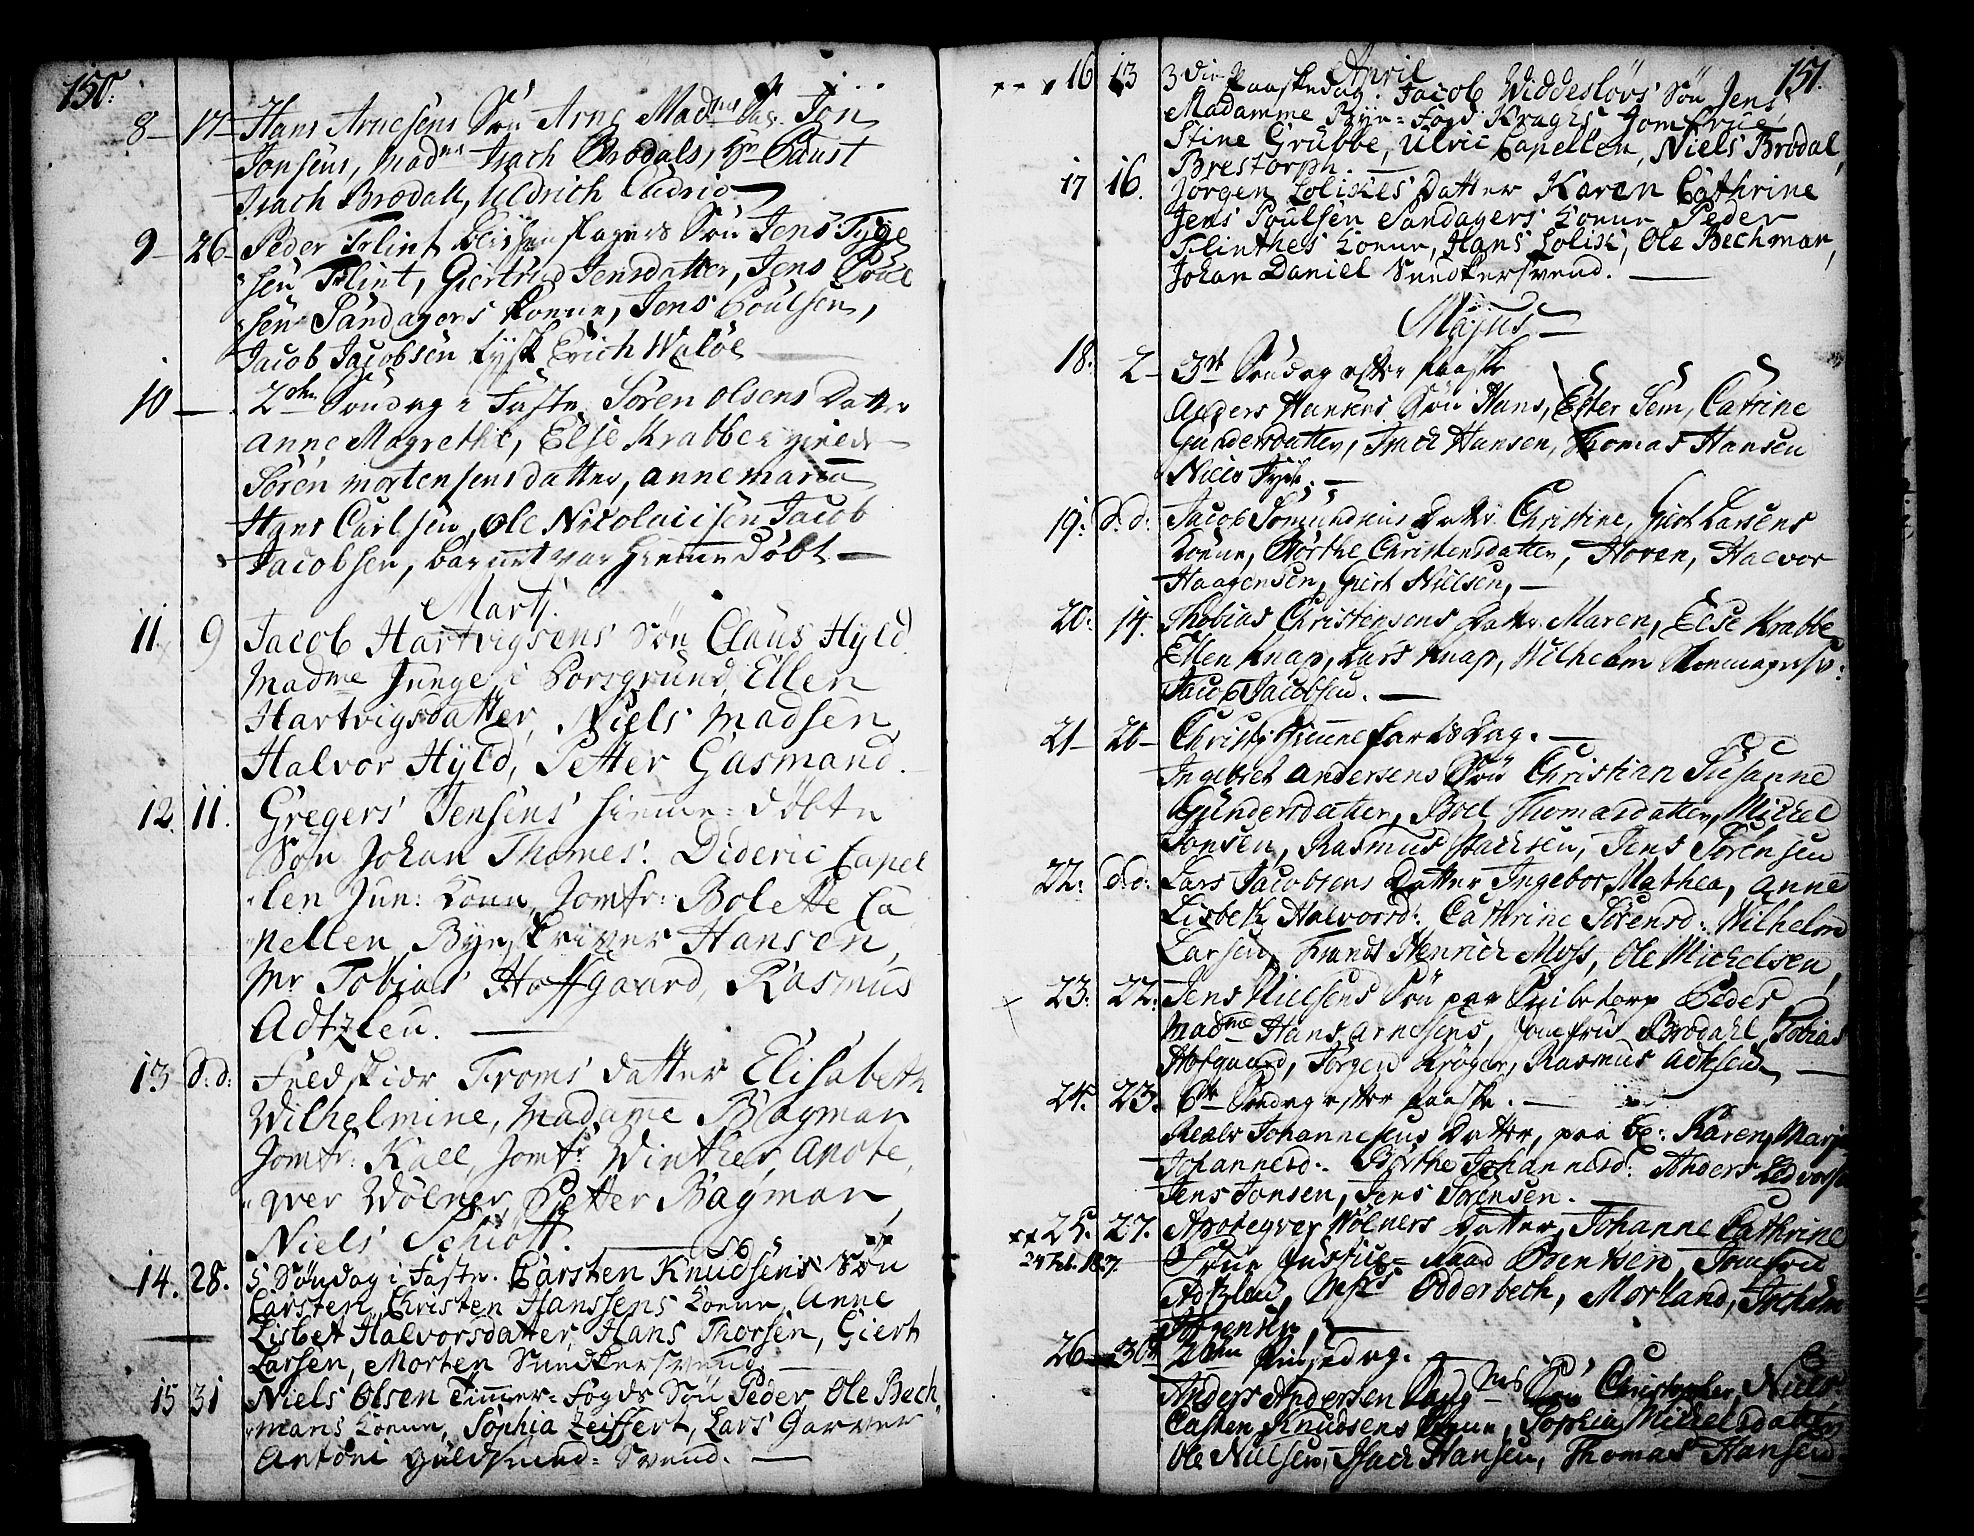 150.
8 – 17 – Hans Arnesens Søn Arne Madme Jon
Jonsens, Madme Isach Brodals, Hr Faust
Isach Brodall, Uldrich
9 – 26 – Peder Flint Søn Jens Tyge
sen Flint, Giertrud Jensdatter, Jens Poul
sen Sandagers Kone, Jens Poulsen,
Jacob Jacobsen Tysk Erich Waløe
10 – 2den Søndag i Faste Søren Olsens Datter
Anne Magrethe, Else Krabbe
Søren Mortensens datter, Anne Maria
Hans Carlsen, Ole Nicolaisen Jacob
Jacobsen, barnet var hiemme Døbt –
Martj.
11 9 Jacob Hartvigsens Søn Claus Hyld.
Madme Junge i Porsgrund, Ellen
Hartvigsdatter, Niels Madsen
Halvor Hyld, Petter Gasmand.
12. 11. Gregers Jensens hiemme-døbte
Søn Johan Thomes. Dideric Capel
len Jun: Kone, Jomfr: Bolette Ca
pellen, Byeskriver Hansen,
Mr Tobias Hoffgaard, Rasmus
Adtzlew. –
13 d: d: Feldskier Froms datter Elisabeth
Wilhelmine, Madame Bagman
Jomfr: Kall, Jomfr Winther, Apote,
qver Wølner, Petter Bagman,
Niels Schiøtt.
14. 28. 5 Søndag i Faste. Carsten Knudsens Søn
Carsten, Christen Hanssens Kone, Anne
Lisbet Halvorsdatter, Hans Thorsen, Giert
Larsen, Morten Snedkersvend. –
15 31 Niels Olsen Tømmer-Fogds Søn Peder, Ole Bech
mans Kone, Sophia Zeiffert, Lars Garver
Antoni Guldsmed-Svend. –
151.
April
16 13 3die Paaskedag. Jacob Widdesløvs Søn Jens
Madamme Bye-Fogd Krags Jomfrue
Stine Grubbe, Ulric Capellen, Niels Brodal,
Brestorph. –
17 16. Jørgen Solikes Datter Karen Cathrine
Jens Poulsen Sandagers Kone Peder
Flinthes Kone, Hans Solik, Ole Bechman,
Johan Daniel Snedkersvend. –
Majus
18. 2 – 3die Søndag efter Paaske
Anders Hansens Søn Hans, Ester Sem, Catrine
Gundersdatter, Hansen, Thomas Hansen
Niels Tysk. –
19. d. d: Jacob Datter Christine, Giert Larsens
Kone, Børthe Christensdatter, Maren, Halvor
Haagensen, Giert Nielsen, –
20. 14. Thobias Christensens Datter Maren, Else Krabbe
Ellen Knap, Lars Knap, Wilhelm
Jacob Jacobsen. –
21 – 20 – Christi Himmelfarts Dag. –
Ingebret Andersens Søn Christian Susanne
Gundersdatter, Boel Thomasdatter, Mickel
Jonsen, Rasmus Isacksen, Jens Sørensen
22. d: d: Lars Jacobsens Datter Ingebor Mathea, Anne
Lisbeth Halvorsd: Cathrine Sørensd: Wilhelm
Larsen, Frands Henrich Moss, Ole Michelsen,
23. 22. Jens Nielsens Søn paa Peder
Madme Hans Arnesens, Jomfru Brodahl, Tobias
Hofgaard, Jørgen Krøger, Rasmus Adtzlew –
24. 23. 6te Søndag efter Paaske. –
Johannesens Datter, paa Karen Marj
Johannesd:. Børthe Johannesd: Anders
Jens Jonsen, Jens Sørensen. –
25. 27. Apotegver Wølners Datter, Johanne Cathrine
24 Feb. 1837. Frue Justice-Raad Bentsen Jomfru
Adtzlew, Odderbech, Morland, Jochum
Sørensen, –
26 30te 2den Pinsedag. –
Anders Andersen Søn Christopher Niels
Casten Knudsens Kone, Sophia Mickelsdatter
Ole Nielsen, Isach Hansen, Thomas Hansen.